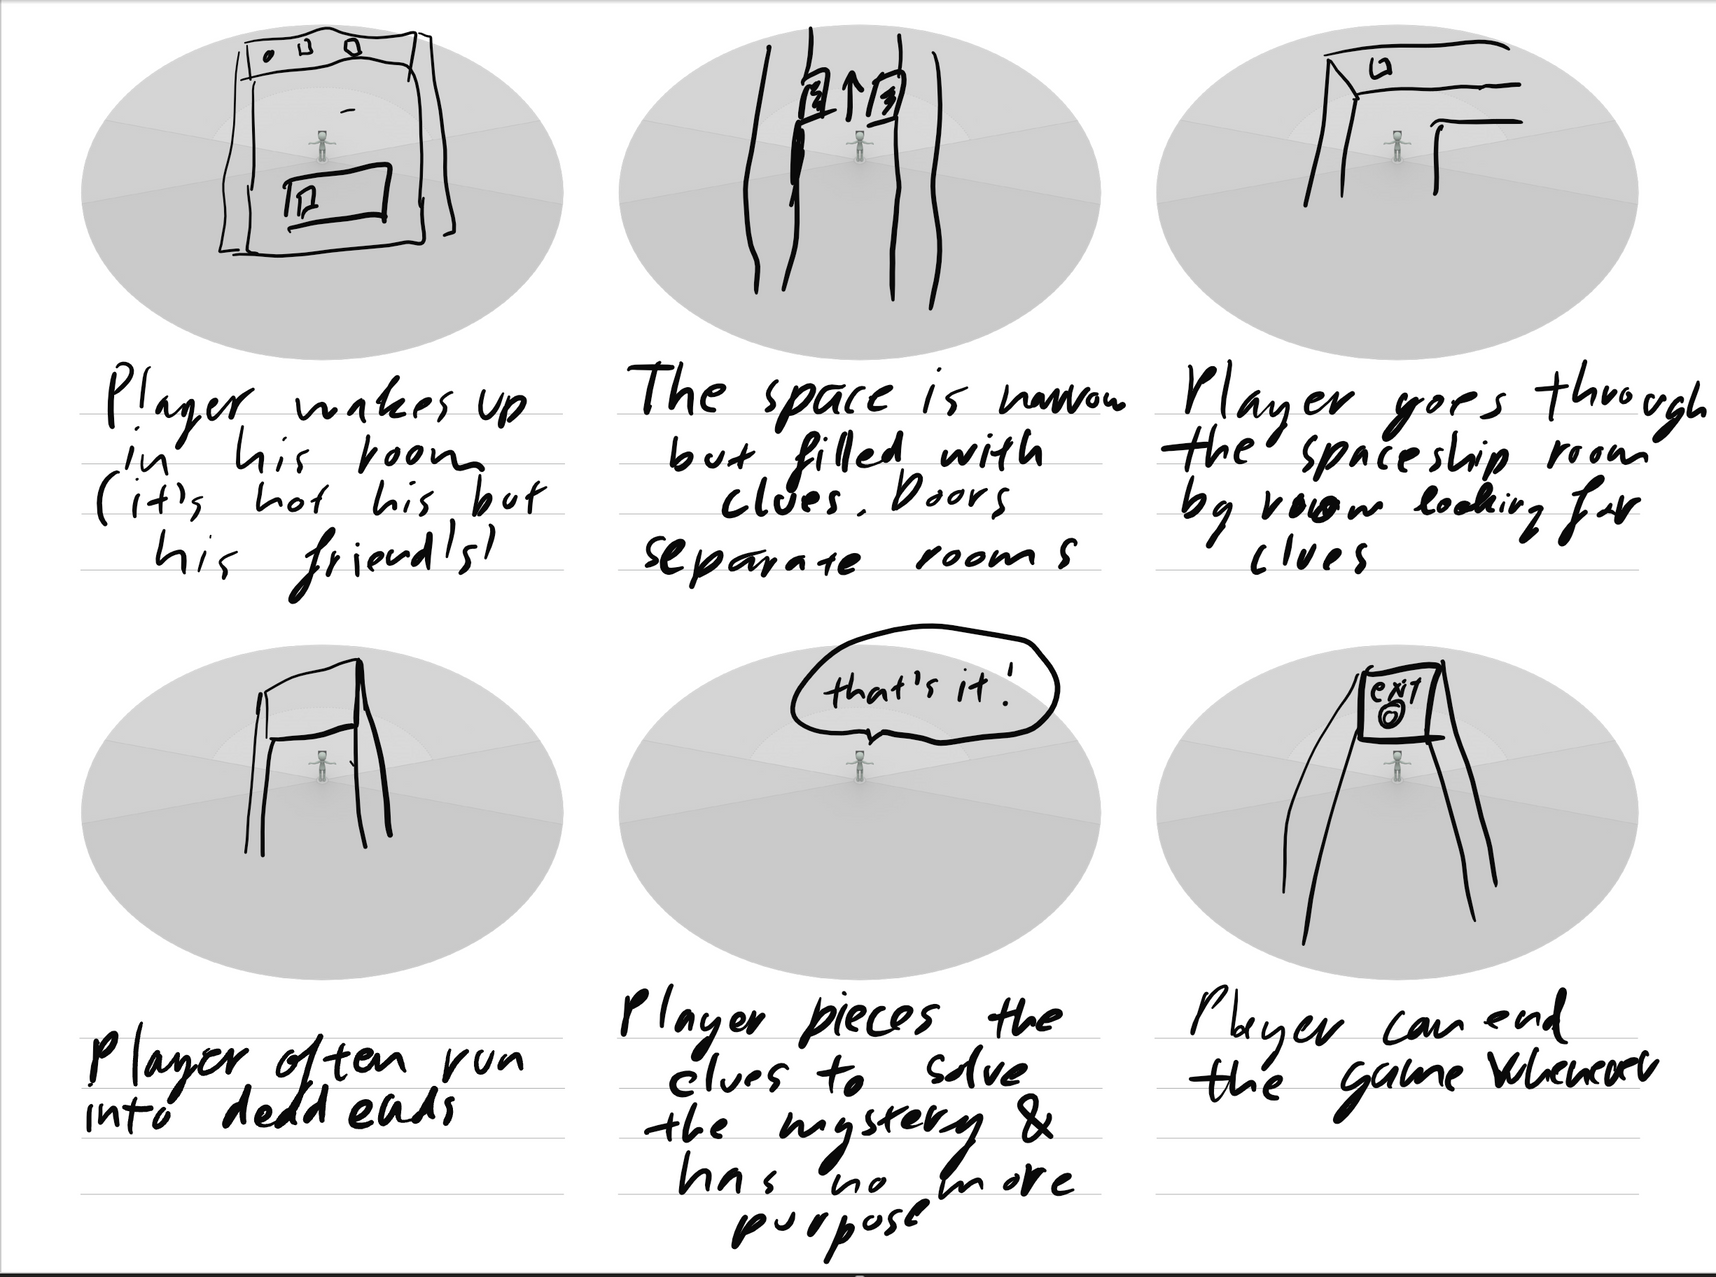 Player wakes up
in his room
(it's not his but
his friend's)
The space is narrow
but filled with
clues. Doors
separate rooms
Player goes through
the spaceship room
by room looking for
clues
Player often run
into dead ends
that's it!
Player pieces the
clues to solve
the mystery &
has no more
purpose
exit
Player can end
the game whenever